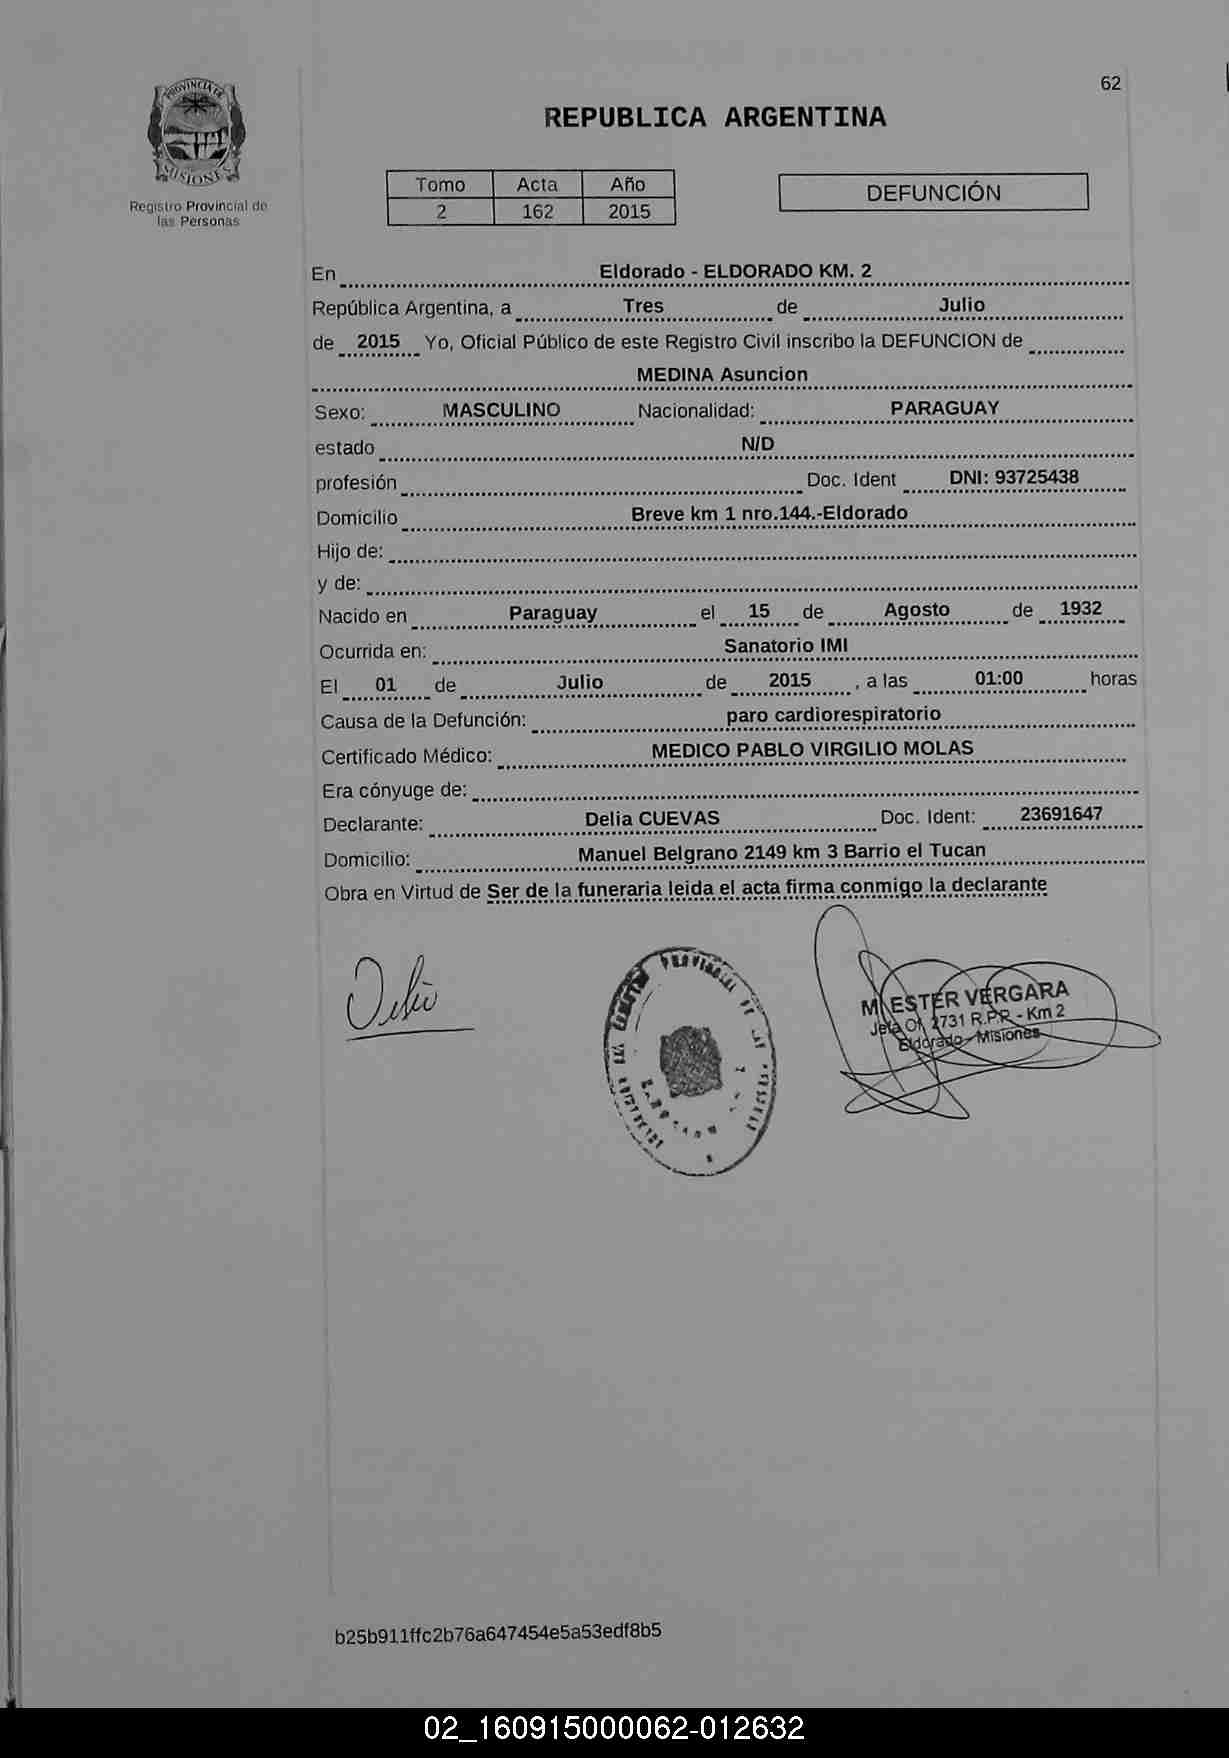 62
PROVINCIA DE
MISIONES
Registro Provincial de
las Personas
REPUBLICA ARGENTINA
Tomo Acta Año
2 162 2015
DEFUNCIÓN
En Eldorado - ELDORADO KM. 2
República Argentina, a Tres de Julio
de 2015 Yo, Oficial Público de este Registro Civil inscribo la DEFUNCION de
MEDINA Asuncion
Sexo: MASCULINO Nacionalidad: PARAGUAY
estado N/D
profesión Doc. Ident DNI: 93725438
Domicilio Breve km 1 nro.144.-Eldorado
Hijo de:
y de:
Nacido en Paraguay el 15 de Agosto de 1932
Ocurrida en: Sanatorio IMI
El 01 de Julio de 2015 , a las 01:00 horas
Causa de la Defunción: paro cardiorespiratorio
Certificado Médico: MEDICO PABLO VIRGILIO MOLAS
Era cónyuge de:
Declarante: Delia CUEVAS Doc. Ident: 23691647
Domicilio: Manuel Belgrano 2149 km 3 Barrio el Tucan
Obra en Virtud de Ser de la funeraria leida el acta firma conmigo la declarante
PROVINCIAL DE LAS
M. ESTER VERGARA
Jefa Of. 2731 R.P.P. - Km 2
Eldorado - Misiones
b25b911ffc2b76a647454e5a53edf8b5
02_160915000062-012632